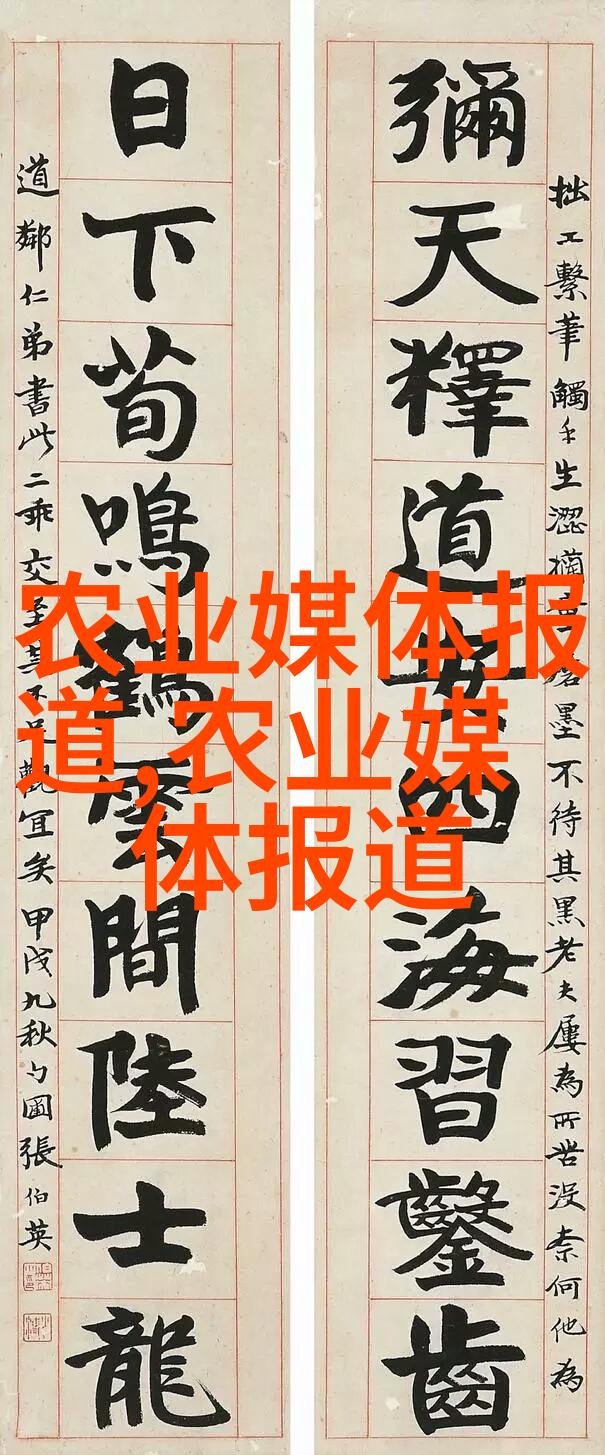 拙工繫筆觸手生澀磨墨不待其黑老夫屢為所苦沒柰何他為
彌天釋道安四海習鑿齒
日下荀鳴鶴雲間陸士龍
道鄰仁弟書此二乖交至其不足觀宜矣甲戌九秋勺圃張伯英
农业媒体报
道,农业媒
体报道